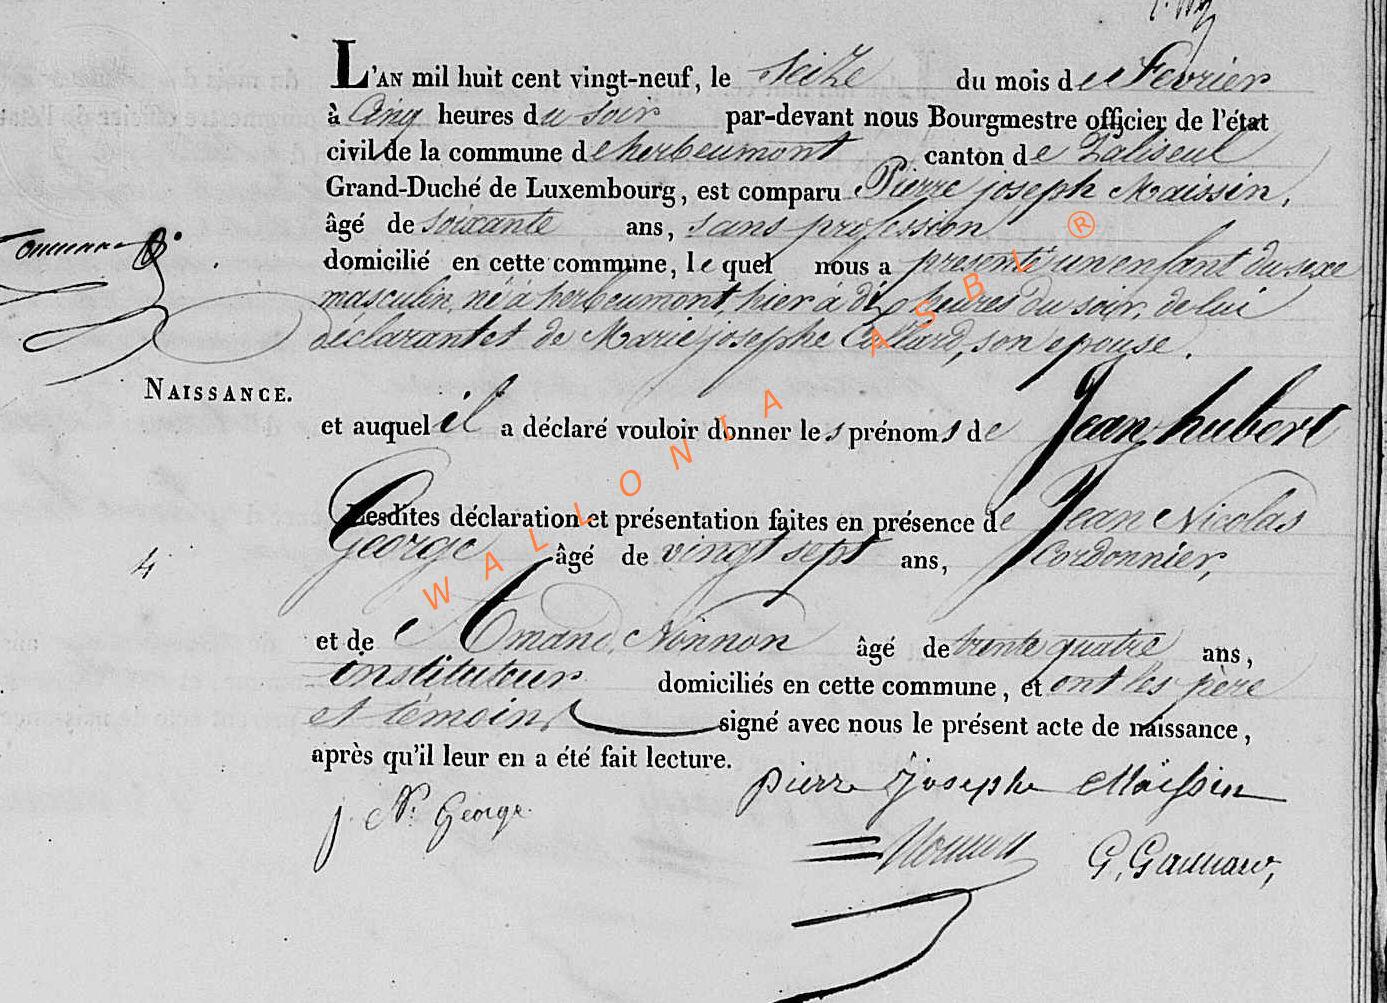 L'AN mil huit cent vingt-neuf, le seize du mois de Fevrier
à Cinq heures du soir par-devant nous Bourgmestre officier de l'état
civil de la commune de herbeumont canton de Paliseul
Grand-Duché de Luxembourg, est comparu Pierre joseph Maissin,
âgé de soixante ans, sans profession
domicilié en cette commune, le quel nous a presenté un enfant du sexe
masculin, né à herbeumont, hier à dix heures du soir, de lui
déclarant et de Marie josephe Collard, son epouse.
NAISSANCE.
et auquel il a déclaré vouloir donner les prénoms de Jean, hubert
Lesdites déclaration et présentation faites en présence de Jean Nicolas
George âgé de vingt sept ans, Cordonnier,
4
et de Amand Nonnon âgé de trente quatre ans,
instituteur domiciliés en cette commune, et ont les père
et témoins signé avec nous le présent acte de naissance,
après qu'il leur en a été fait lecture.
pierre josephe Maissin
j. N. George
Nonnon
WALLONIA ASBL ®